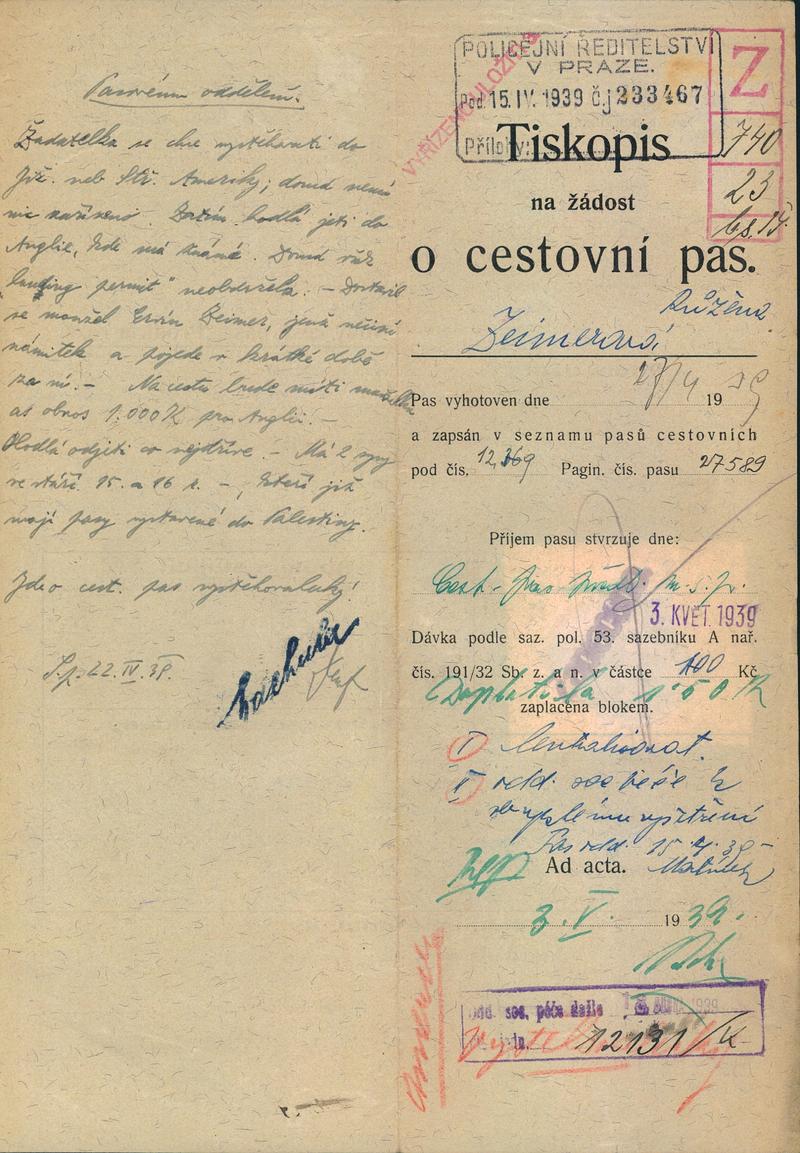 Pasovému oddělení.
Žadatelka se chce vystěhovati do
Již. neb Stř. Ameriky; dosud nemá
nic zařízeno. Zatím hodlá jeti do
Anglie, kde má známé. Dosud však
"landing permit" neobdržela. – Dostavil
se manžel Ervin Zeimer, jenž nečiní
námitek a pojede v krátké době
za ní. – Na cestu bude míti manželka
as obnos 1.000 K pro Anglii. –
Hodlá odjeti co nejdříve. – Má 2 syny
ve stáří 15. a 16 r. –, kteří již
mají pasy vystavené do Palestiny.
Jde o cest. pas vystěhovalecký!
22. IV. 39.
POLICEJNÍ ŘEDITELSTVÍ
V PRAZE.
Pod. 15. IV. 1939 č.j 233467
Přílohy:
VYŘÍZENO ULOŽIT
Z
740
23
Tiskopis
na žádost
o cestovní pas.
Růžena
Zeimerová
Pas vyhotoven dne 27/4 1939
a zapsán v seznamu pasů cestovních
pod čís. 12.369 Pagin. čís. pasu 27589
Příjem pasu stvrzuje dne:
Cest. pas
3. KVĚT. 1939
Dávka podle saz. pol. 53. sazebníku A nař.
čís. 191/32 Sb. z. a n. v částce 100 Kč
Doplatila 1·50 K
zaplacena blokem.
I
II odd. soc péče k
Pas odd. 15.4.39 –
Ad acta.
3. V. 1939.
odd. soc. péče došlo 1939
12131/K